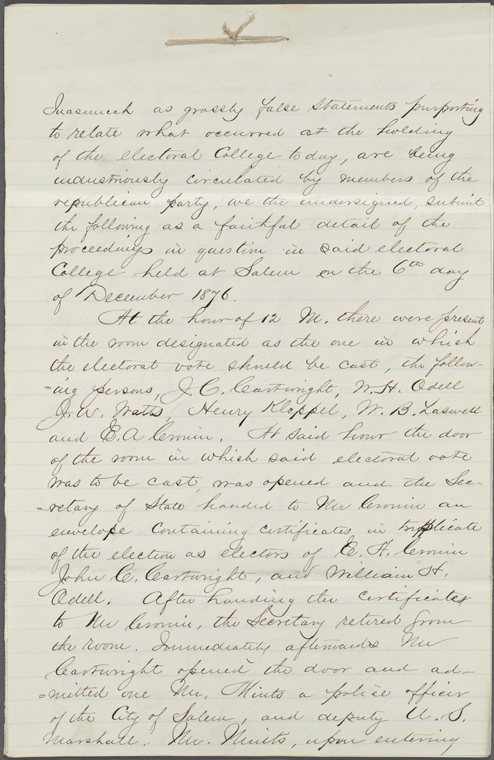 Inasmuch as grossly false statements purporting
to relate what occurred at the holding
of the electoral College today, are being
industriously circulated by members of the
republican party, we the undersigned, submit
the following as a faithful detail of the
proceedings in question in said electoral
College held at Salem on the 6th day
of December 1876.
At the hour of 12 M. there were present
in the room designated as the one in which
the electoral vote should be cast, the follow-
-ing persons, J. C. Cartwright, W. H. Odell
J. W. Watts, Henry Klippel, W. B. Laswell
and E. A. Cronin. At said hour the door
of the room in which said electoral vote
was to be cast, was opened and the Sec-
-retary of State handed to Mr Cronin an
envelope containing certificates, in triplicate
of the election as electors of E. A. Cronin
John C. Cartwright, and William H.
Odell. After handing the certificates
to Mr Cronin, the Secretary retired from
the room. Immediately afterwards Mr
Cartwright opened the door and ad-
-mitted one Mr. Minto a police officer
of the City of Salem, and deputy U. S.
Marshall. Mr. Minto, upon entering